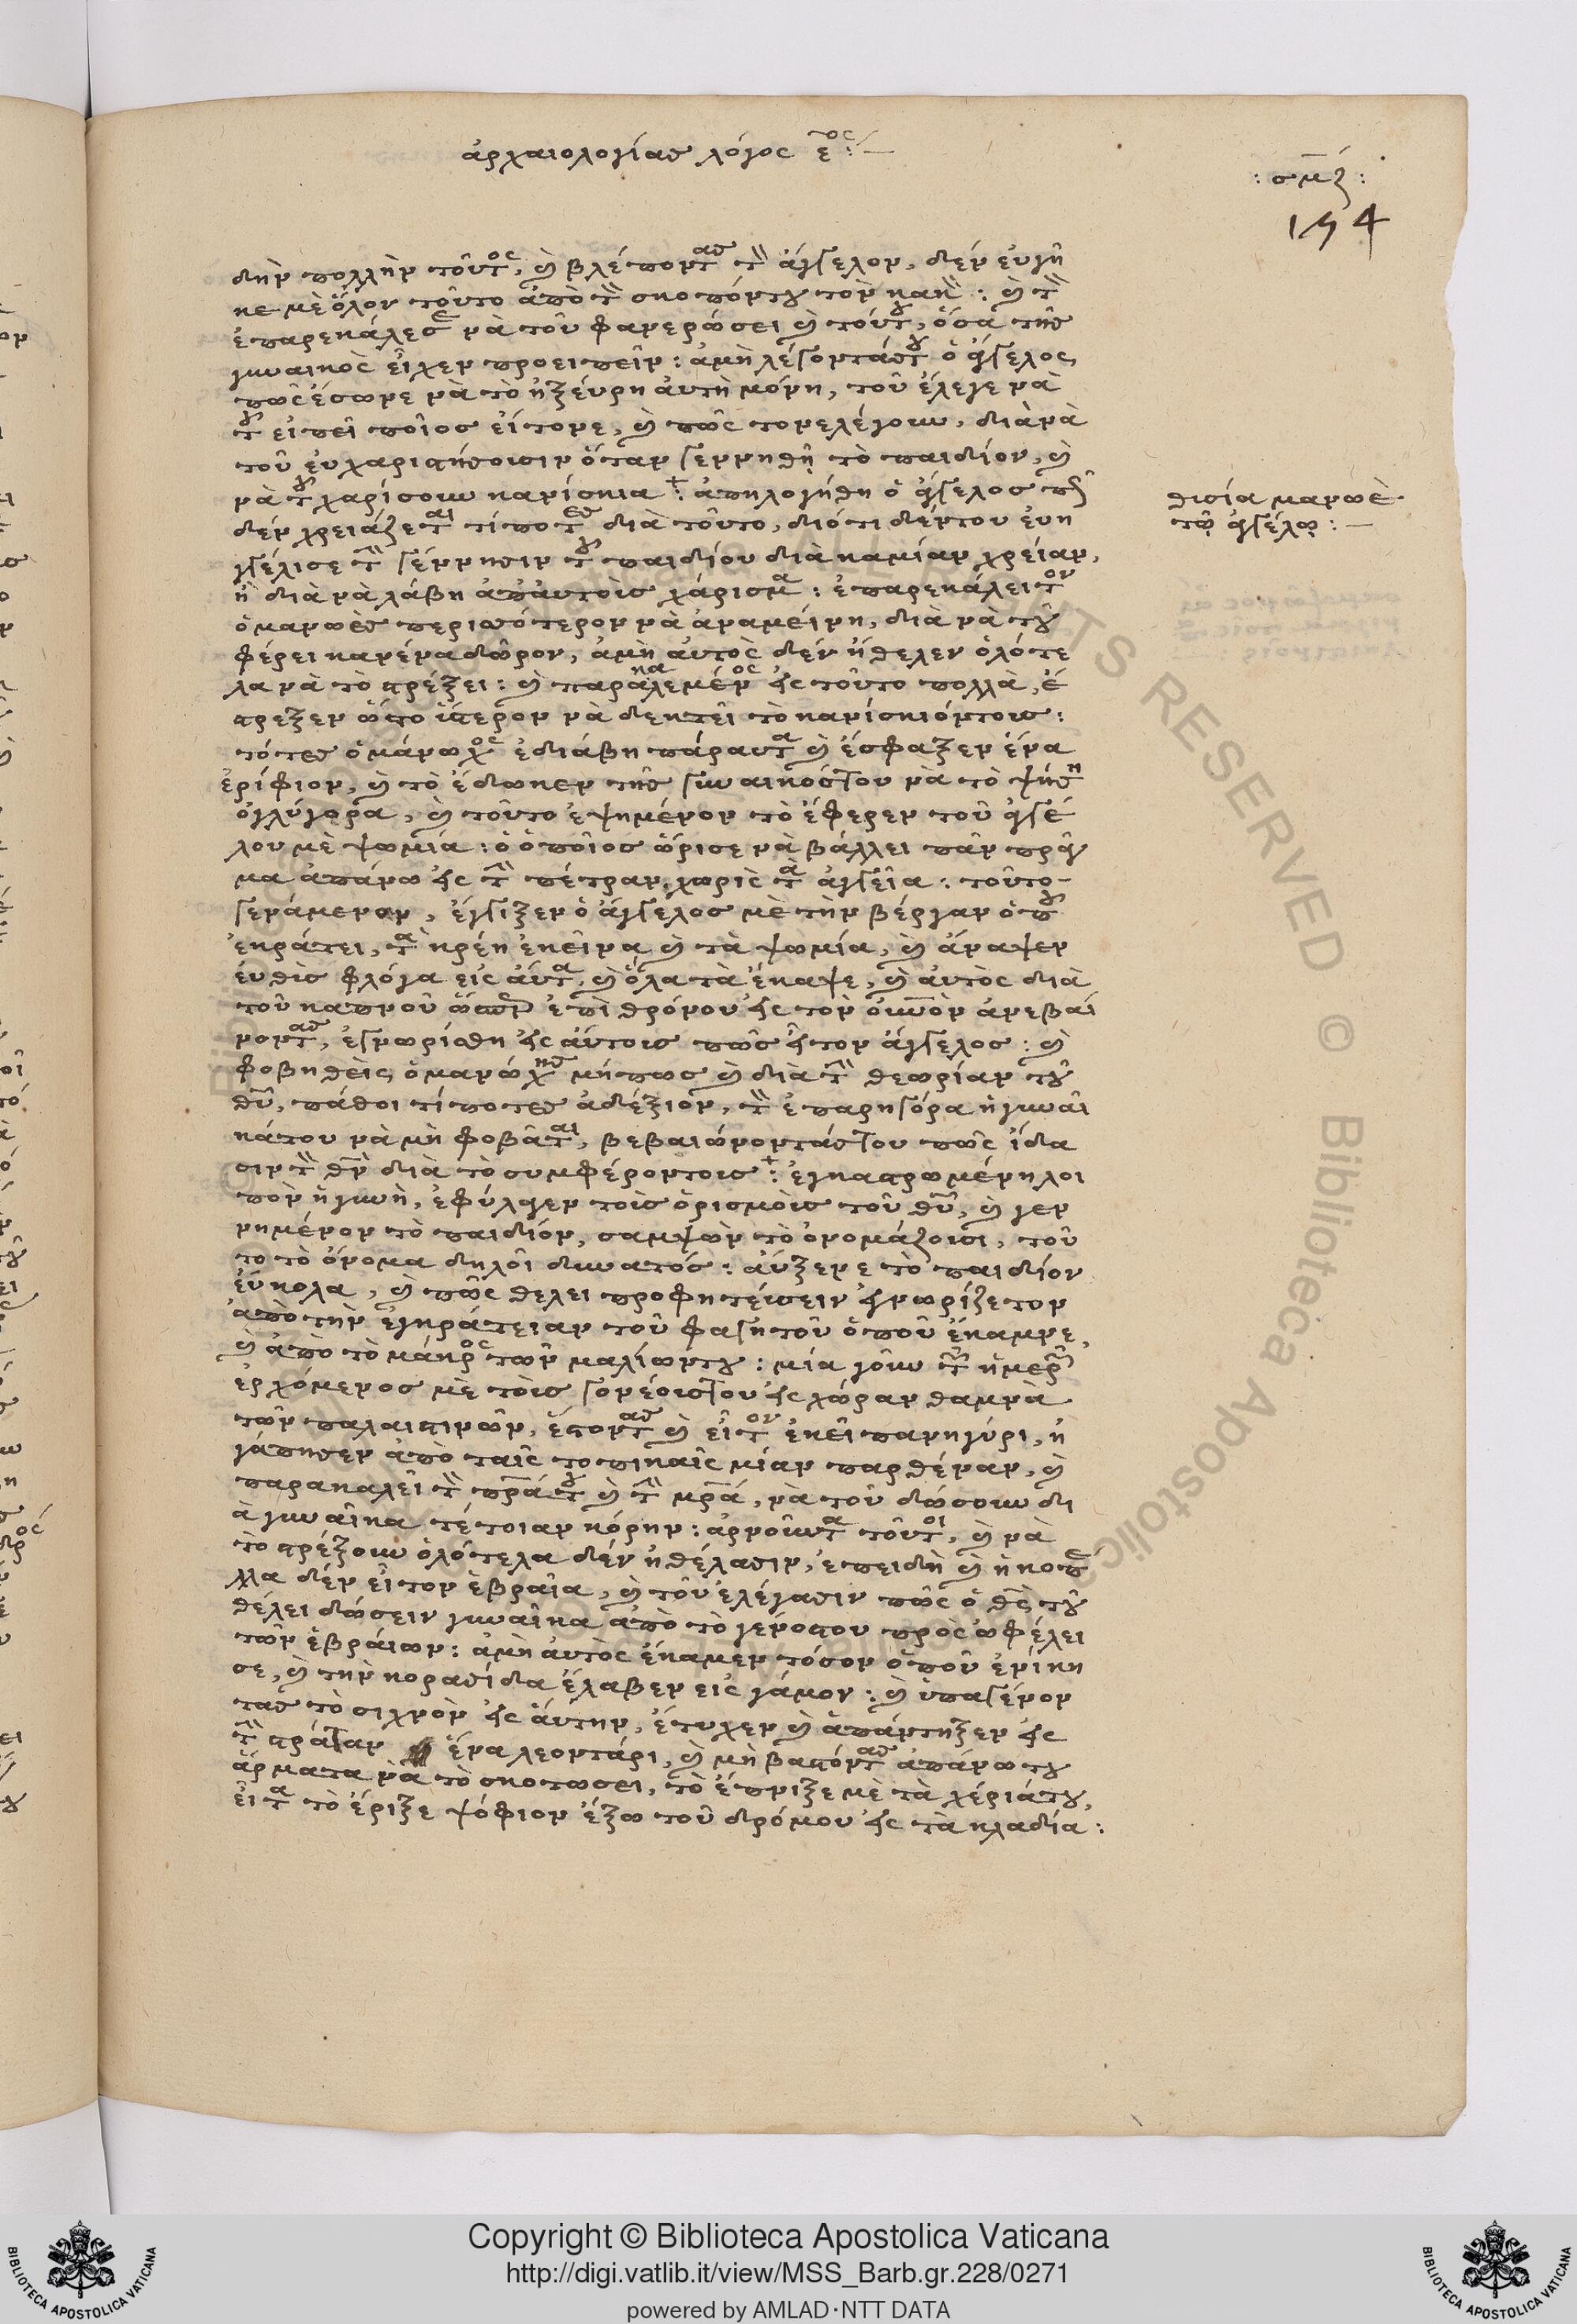 ἀρχαιολογίας λόγος ε^ος:—
: σμζ :
154
δην πολλὴν τοῦτος, καὶ βλέποντας τὸν ἄγγελον, δὲν εὐγῆ
κε μὲ ὅλον τοῦτο ἀπὸ τὸν σκοπόντου τὸν κακὸν: καὶ τὸν
ἐπαρεκάλεσε νὰ τοῦ φανερώσει καὶ τούτου, ὅσα τῆς
γυναικὸς εἶχεν προειπεῖν: ἀμὴ λέγοντάστου ὁ ἄγγελος
πῶς ἔσωνε νὰ τὸ ἠξεύρη αὐτὴ μόνη, τοῦ ἔλεγε νὰ
τοῦ εἰπεῖ ποῖος εἴτονε, καὶ πῶς τονελέγουν, διὰ νὰ
τοῦ εὐχαριστήσουσιν ὅταν γεννηθῇ τὸ παιδίον, καὶ
νὰ τοῦ χαρίσουν κανίσκια: ἀπηλογήθη ὁ ἄγγελος πῶς
δὲν χρειάζεται τίποτες διὰ τοῦτο, διότι δέντου ἐυη
γγέλισε τὴν γέννησιν τοῦ παιδίου διὰ καμίαν χρείαν,
ἢ διὰ νὰ λάβη ἀπ' αὐτοὺς χάρισμα: ἐπαρεκάλει τον
ὁ μανωὲς περισσότερον νὰ ἀναμείνη, διὰ νὰ τοῦ
φέρει κανένα δῶρον, ἀμὴ αὐτὸς δὲν ἤθελεν ὁλότε
λα νὰ τὸ στρέξει: καὶ παρακαλεμένος εἰς τοῦτο πολλὰ, ἔ
στρεξεν ὥστο ὕστερον νὰ δεκτεῖ τὸ κανίσκιόντους:
τότες ὁ μάνωχος ἐδιάβη πάραυτα καὶ ἔσφαξεν ἕνα
ἐρίφιον, καὶ τὸ ἔδωκεν τῆς γυναικόστου νὰ τὸ ψήση
ὀγλύγορα, καὶ τοῦτο ἐψημένον τὸ ἔφερεν τοῦ ἀγγέ
λου μὲ ψωμία: ὁ ὁποῖος ὥρισε νὰ βάλλει πᾶν πρᾶγ
μα ἀπάνω εἰς τὴν πέτραν, χωρὶς τὰ ἀγγεῖα: τοῦτο-
γενάμενον, ἔγγιξεν ὁ ἄγγελος μὲ τὴν βέργαν ὁποῦ
ἐκράτει, τὰ κρέη ἐκεῖνα καὶ τὰ ψωμία, καὶ ἄναψεν
εὐθὺς φλόγα εἰς αὐτὰ, καὶ ὅλα τὰ ἔκαψε, καὶ αὐτὸς διὰ
τοῦ καπνοῦ ὥσπερ ἐπὶ θρόνου εἰς τὸν οὐνὸν ἀνεβαί
νοντας, ἐγνωρίσθη εἰς αὐτοὺς πῶς ἦτον ἄγγελος: καὶ
φοβηθεὶς ὁ μανώχης μήπως καὶ διὰ τὴν θεωρίαν τοῦ
θῦ, πάθοι τίποτες ἀδέξιον, τὸν ἐπαρηγόρα ἡ γυναῖ
κάτου νὰ μὴ φοβᾶται, βεβαιώνοντάστου πῶς ἴδα
σιν τὸν θν διὰ τὸ συμφέροντους: ἐγκαστρωμένη λοι
πὸν ἡ γυνὴ, ἐφύλαγεν τοὺς ὁρισμοὺς τοῦ θῦ, καὶ γεν
νημένον τὸ παιδίον, σαμψὼν τὸ ὀνομάζουσι, τοῦ
το τὸ ὄνομα δηλοῖ δυνατός: αὔξενε τὸ παιδίον
εὔκολα, καὶ πῶς θέλει προφητεύσειν ἐγνωρίζετον
ἀπὸ τὴν ἐγκράτειαν τοῦ φαγητοῦ ὁποῦ ἔκαμνε,
καὶ ἀπὸ τὸ μάκρος τῶν μαλίωντου: μία γοῦν τῶν ἡμερῶν
ἐρχόμενος μὲ τοὺς γονέουστου εἰς χώραν θαμνὰ
τῶν παλαιστινῶν, ἔστοντας καὶ εἶτον ἐκεῖ πανηγύρι, ἠ
γάπησεν ἀπὸ ταῖς τοπικαῖς μίαν παρθέναν, καὶ
παρακαλεῖ τὸν πράτου καὶ τὴν μρά, νὰ τοῦ δώσουν δι
ὰ γυναῖκα τέτοιαν κόρην: ἀρνοῦντα τοῦτοι, καὶ νὰ
τὸ στρέξουν ὁλότελα δὲν ἠθέλασιν, ἐπειδὴ καὶ ἡ κοπέ
λλα δὲν εἶτον ἑβραῖα, καὶ τοῦ ἐλέγασιν πῶς ὁ θς τοῦ
θέλει δώσειν γυναῖκα ἀπὸ τὸ γένοστου πρὸς ὠφέλει
τῶν ἑβραίων: ἀμὴ αὐτὸς ἔκαμεν τόσον ὁποῦ ἐνίκη
σε, καὶ τὴν κορασίδα ἔλαβεν εἰς γάμον: καὶ ὑπαγένον
τας τὸ συχνὸν εἰς αὐτην, ἔτυχεν καὶ ἀπάντηξεν εἰς
τὴν στράταν ἕνα λεοντάρι, καὶ μὴ βαστόντας ἀπάνωτου
ἄρματα νὰ τὸ σκοτώσει, τὸ ἔπνιξε μὲ τὰ χέριάτου,
εἶτα τὸ ἔριξε ψόφιον ἔξω τοῦ δρόμου εἰς τὰ κλαδία:
θυσία μανωὲ
τῷ ἀγγέλῳ:—
Copyright © Biblioteca Apostolica Vaticana
http://digi.vatlib.it/view/MSS_Barb.gr.228/0271
powered by AMLAD·NTT DATA